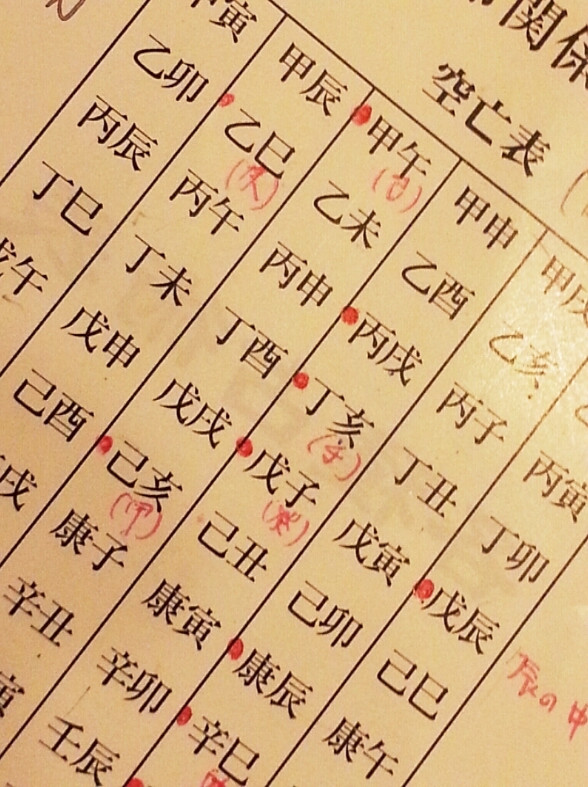 関係
空亡表
寅 甲辰 甲午 甲申 甲戌
(己)
乙卯 乙巳 乙未 乙酉 乙亥
丙辰 丙午 丙申 丙戌 丙子 丙寅
丁巳 丁未 丁酉 丁亥 丁丑 丁卯
午 戊申 戊戌 戊子 戊寅 戊辰
(癸)
己酉 己亥 己丑 己卯 己巳
(甲)
戌 康子 康寅 康辰 康午
辛丑 辛卯 辛巳
寅 壬辰
辰の中